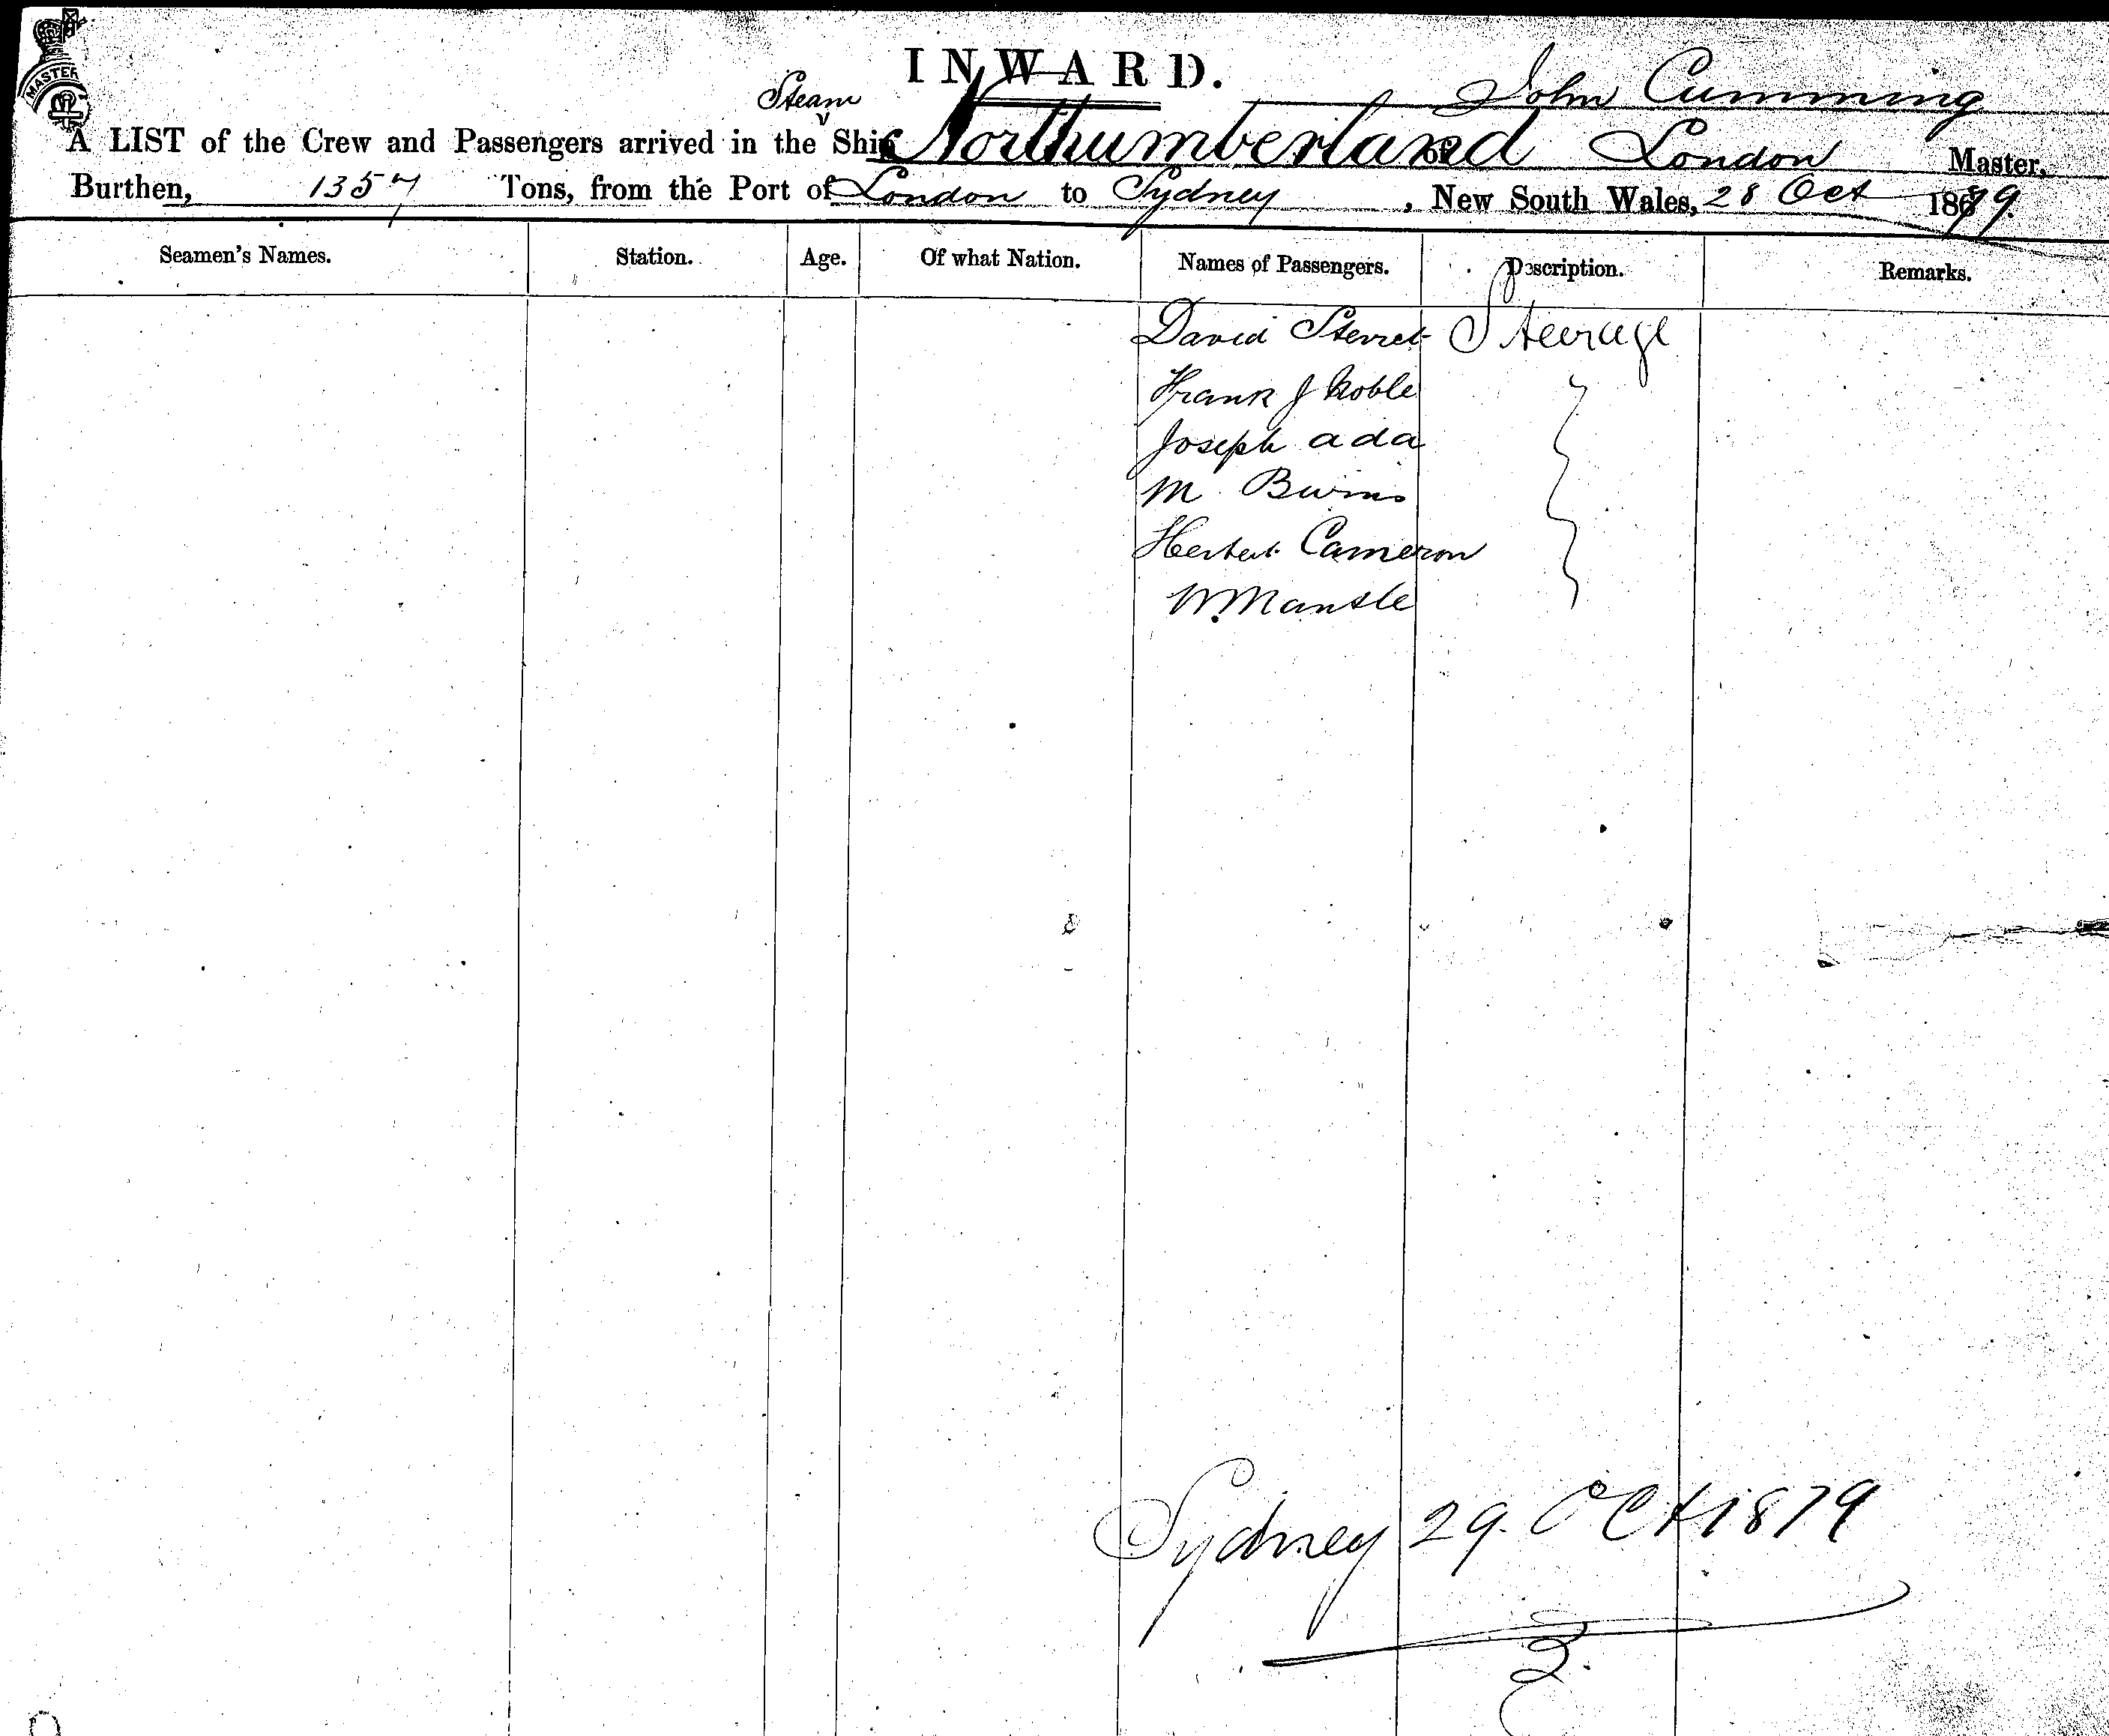 MASTER
INWARD.
John Cumming
Steam
A LIST of the Crew and Passengers arrived in the Ship Northumberland of London Master,
Burthen, 1357 Tons, from the Port of London to Sydney, New South Wales, 28 Oct 1879.
Seamen's Names. Station. Age. Of what Nation. Names of Passengers. Description. Remarks.
David Sterret Steerage
Frank J Noble
Joseph ada
M Burns
Herbert Cameron
W. Mantle
Sydney 29. Oct 1879